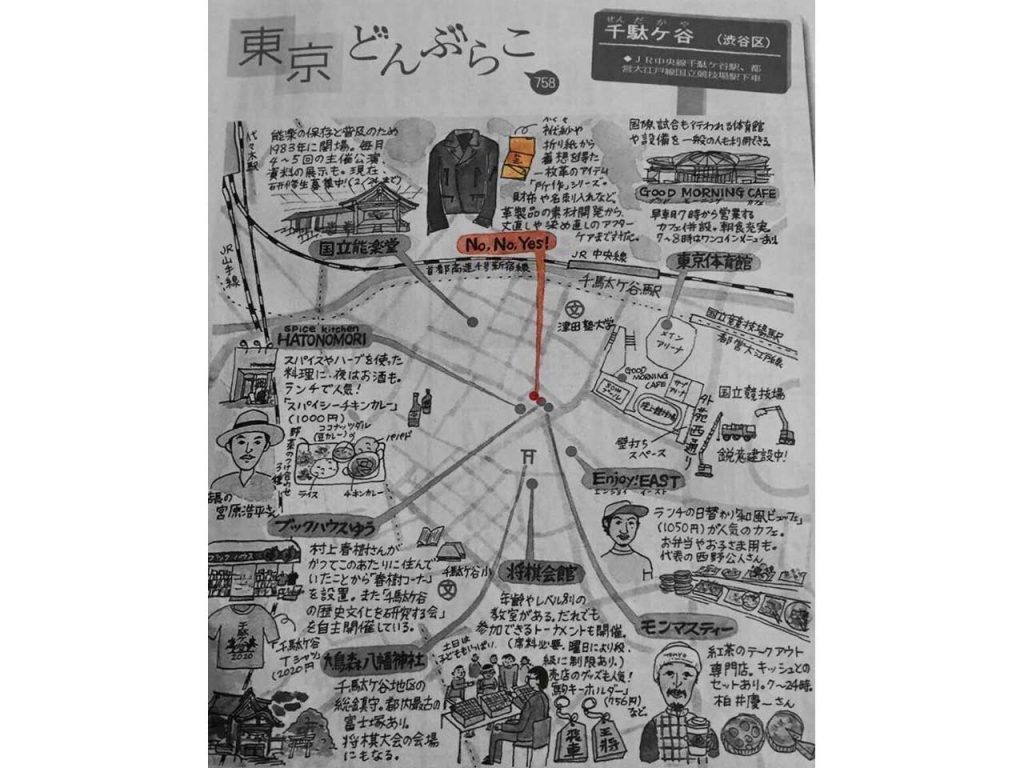 東京どんぶらこ
758
せんだがや
千駄ケ谷 (渋谷区)
◆JR中央線千駄ケ谷駅、都
営大江戸線国立競技場駅下車
代々木駅
能楽の保存と普及のため
1983年に開場。毎月
4〜5回の主催公演
資料の展示も。現在
国立能楽堂
折り紙から
着想を得た
一枚革のアイテム
「所作」シリーズ。
財布や名刺入れなど。
革製品の素材開発から、
丈直しや染め直しのアフター
ケアまで対応。
No, No, Yes!
国際試合も行われる体育館
や設備を一般の人も利用できる
GOOD MORNING CAFE
早朝7時から営業する
カフェ併設。朝食充実
7〜8時はワンコインメニューあり
東京体育館
JR山手線
JR中央線
首都高速4号新宿線
千駄ケ谷駅
文
津田塾大学
メイン
アリーナ
国立競技場駅
都営大江戸線
GOOD
MORNING
CAFE
50m
プール
サブ
アリーナ
陸上競技場
外苑西通り
国立競技場
鋭意建設中!
壁打ち
スペース
spice kitchen
HATONOMORI
スパイスやハーブを使った
料理に、夜はお酒も。
ランチで人気!
「スパイシーチキンカレー」
(1000円)
ココナッツダル
(豆カレー)
パパド
野菜のつけ合わせ
ライス
チキンカレー
店長の
宮原浩平さん
Enjoy!EAST
エンジョイ イースト
ランチの日替わり「和風ビュッフェ」
(1050円)が人気のカフェ。
お弁当やお子さま用も。
代表の西野公人さん
ブックハウスゆう
村上春樹さんが
かつてこのあたりに住んで
いたことから「春樹コーナー」
を設置。また「千駄ケ谷
の歴史文化を研究する会」
を自主開催している。
千駄ケ谷
2020
「千駄ケ谷
Tシャツ」
(2020円
千駄ケ谷小
文
将棋会館
年齢やレベル別の
教室がある。だれでも
参加できるトーナメントも開催。
(席料必要。曜日により段、
級に制限あり。)
売店のグッズも人気!
「駒キーホルダー」
(756円)
など。
土日は
子どももいっぱい。
飛車
王将
モンマスティー
紅茶のテークアウト
専門店。キッシュとの
セットあり。7〜24時。
柏井慶一さん
鳩森八幡神社
千駄ケ谷地区の
総鎮守。都内最古の
富士塚あり。
将棋大会の会場
にもなる。